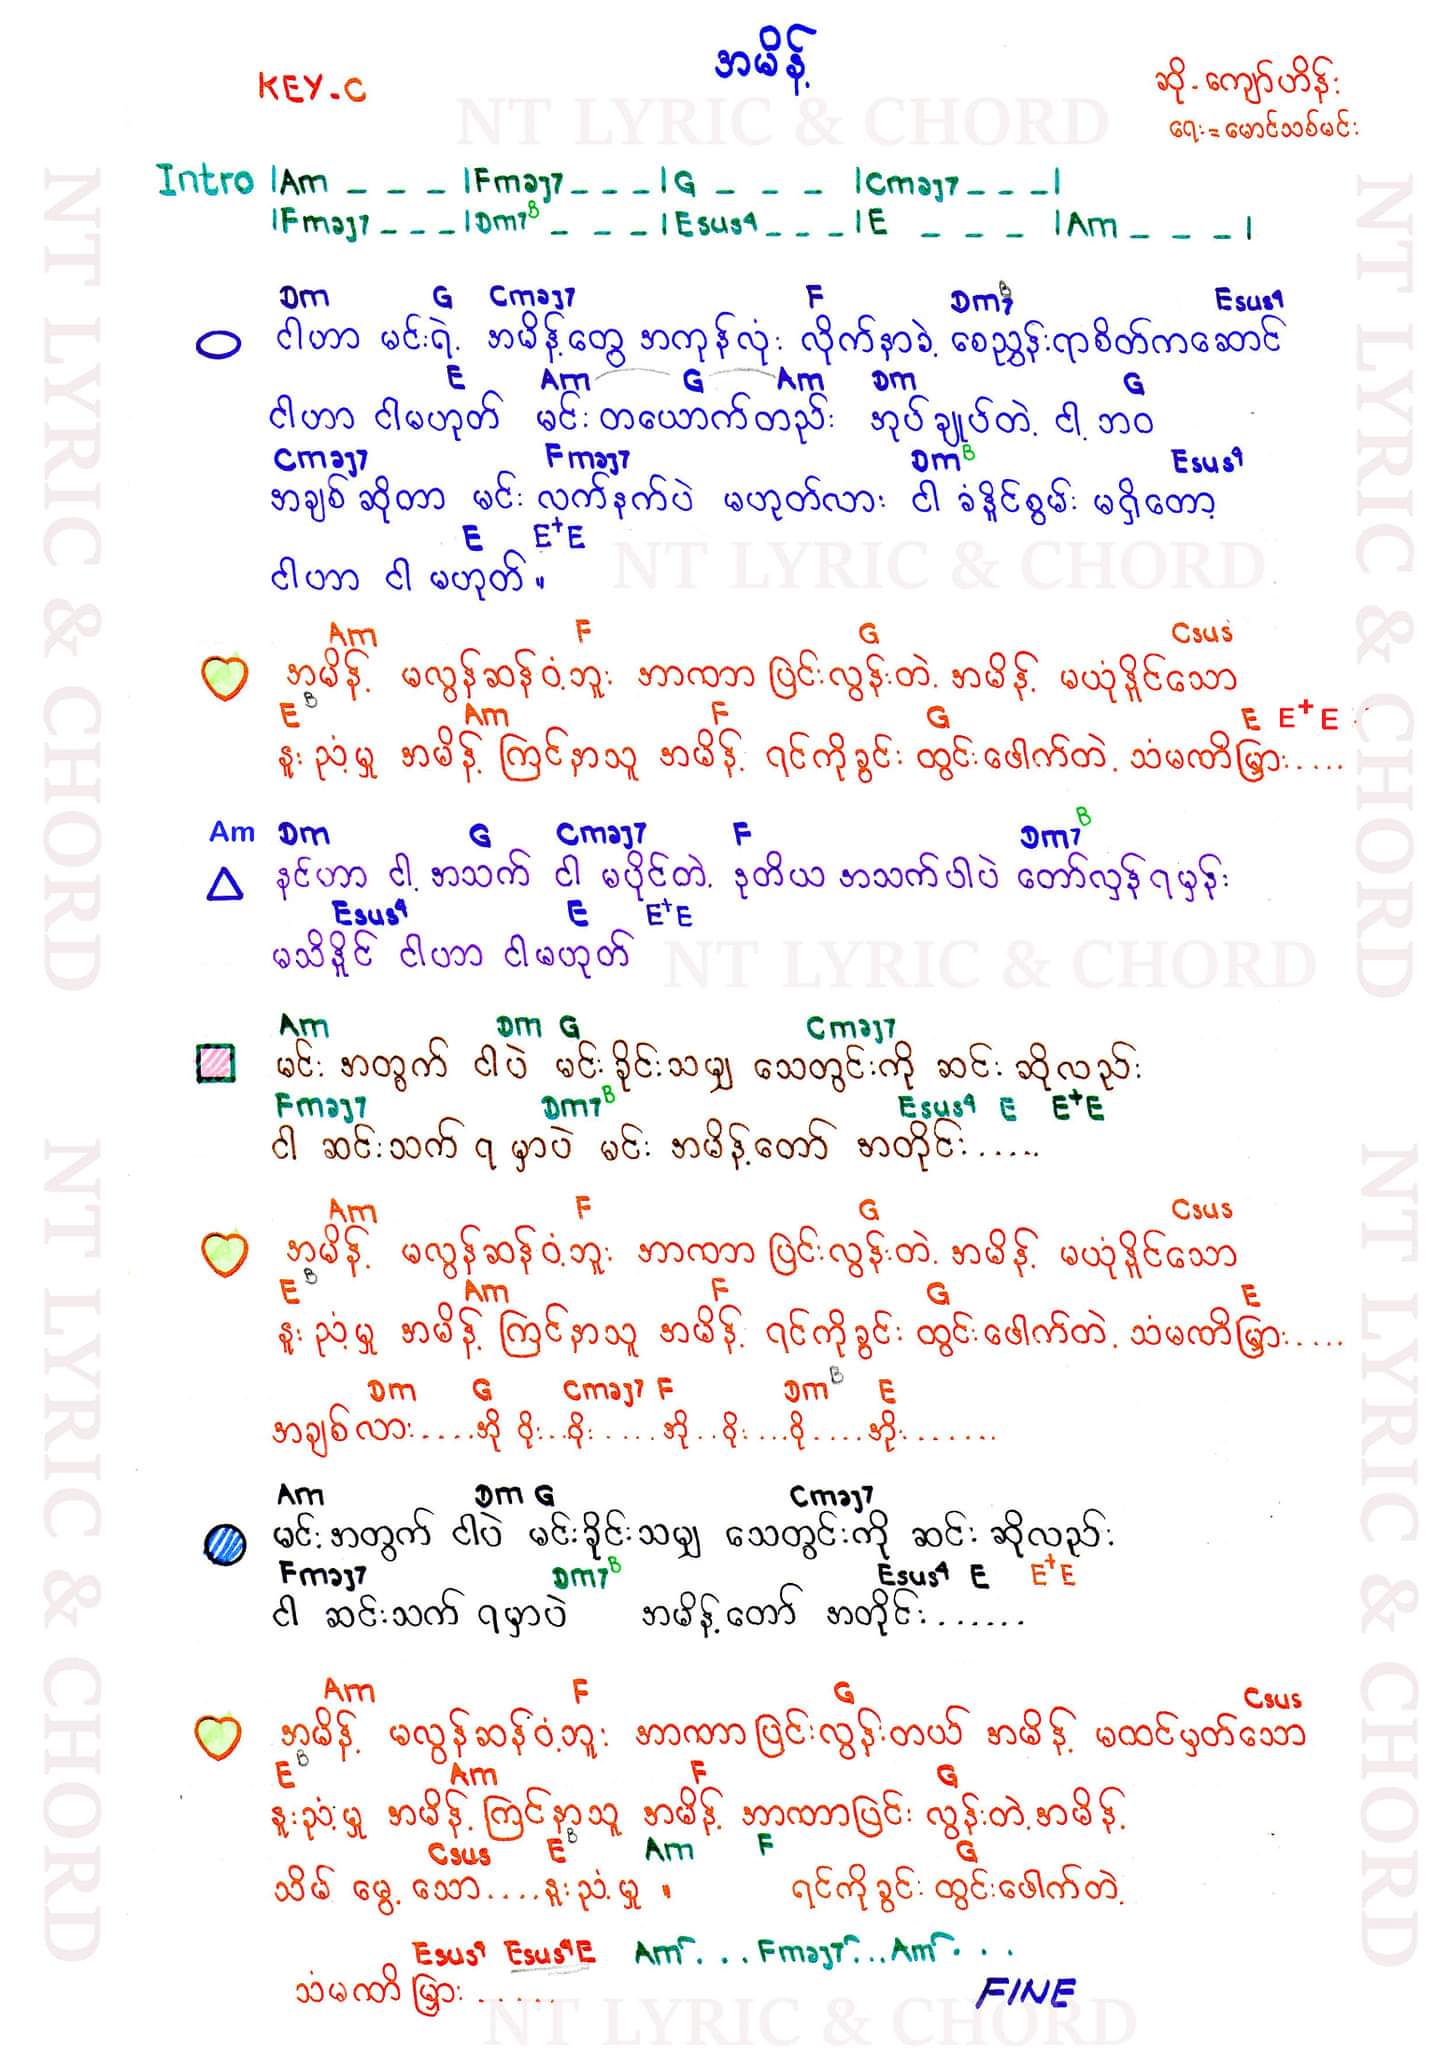 အမိန့်
KEY-C
ဆို - ကျော်ဟိန်း
ရေး = မောင်သစ်မင်း
NT LYRIC & CHORD
Intro |Am _ _ _ |Fmaj7 _ _ _ |G _ _ _ |Cmaj7 _ _ _|
|Fmaj7 _ _ _ |Dm7 B _ _ _ |Esus4 _ _ _ |E _ _ _ |Am _ _ _ |
Dm G Cmaj7 F Dm7 B Esus4
ငါဟာ မင်းရဲ့ အမိန့်တွေ အကုန်လုံး လိုက်နာခဲ့ စေညွှန်းရာစိတ်ကဆောင်
E Am G Am Dm G
ငါဟာ ငါမဟုတ် မင်းတယောက်တည်း အုပ်ချုပ်တဲ့ ငါ့ဘဝ
Cmaj7 Fmaj7 Dm B Esus4
အချစ်ဆိုတာ မင်း လက်နက်ပဲ မဟုတ်လား ငါ ခံနိူင်စွမ်း မရှိတော့
E E+E
ငါဟာ ငါ မဟုတ် ။
NT LYRIC & CHORD
Am F G Csus
အမိန့် မလွန်ဆန်ဝံ့ဘူး အာဏာပြင်းလွန်းတဲ့ အမိန့် မယုံနိူင်သော
E B Am F G E E+ E
နူးညံ့မှု အမိန့် ကြင်နာသူ အမိန့် ရင်ကိုခွင်း ထွင်းဖေါက်တဲ့ သံမဏိမြှား....
Am Dm G Cmaj7 F Dm7 B
နင်ဟာ ငါ့အသက် ငါ မပိုင်တဲ့ ဒုတိယ အသက်ပါပဲ တော်လှန်ရမှန်း
Esus4 E E+E
မသိနိူင် ငါဟာ ငါမဟုတ်
NT LYRIC & CHORD
Am Dm G Cmaj7
မင်း အတွက် ငါပဲ မင်းခိုင်းသမျှ သေတွင်းကို ဆင်း ဆိုလည်း
Fmaj7 Dm7 B Esus4 E E+E
ငါ ဆင်းသက် ရမှာပဲ မင်း အမိန့်တော် အတိုင်း.....
Am F G Csus
အမိန့် မလွန်ဆန်ဝံ့ဘူး အာဏာပြင်းလွန်းတဲ့ အမိန့် မယုံနိူင်သော
E B Am F G E
နူးညံ့မှု အမိန့် ကြင်နာသူ အမိန့် ရင်ကိုခွင်း ထွင်းဖေါက်တဲ့ သံမဏိမြှား....
Dm G Cmaj7 F Dm B E
အချစ်လား....အို ဝိုး..ဝိုး.....အို..ဝိုး...ဝို....အိုး.......
Am Dm G Cmaj7
မင်းအတွက် ငါပဲ မင်းခိုင်းသမျှ သေတွင်းကို ဆင်း ဆိုလည်း
Fmaj7 Dm7 B Esus4 E E+E
ငါ ဆင်းသက် ရမှာပဲ အမိန့်တော် အတိုင်း.......
Am F G Csus
အမိန့် မလွန်ဆန်ဝံ့ဘူး အာဏာပြင်းလွန်းတယ် အမိန့် မထင်မှတ်သော
E B Am F G
နူးညံ့မှု အမိန့် ကြင်နာသူ အမိန့် အာဏာပြင်း လွန်းတဲ့အမိန့်
Csus E B Am F G
သိမ်မွေ့သော....နူးညံ့မှု ။ ရင်ကိုခွင်း ထွင်းဖေါက်တဲ့
Esus4 Esus4E Am... Fmaj7... Am...
သံမဏိမြှား ......
FINE
NT LYRIC & CHORD
NT LYRIC & CHORD
NT LYRIC & CHORD
NT LYRIC & CHORD
NT LYRIC & CHORD